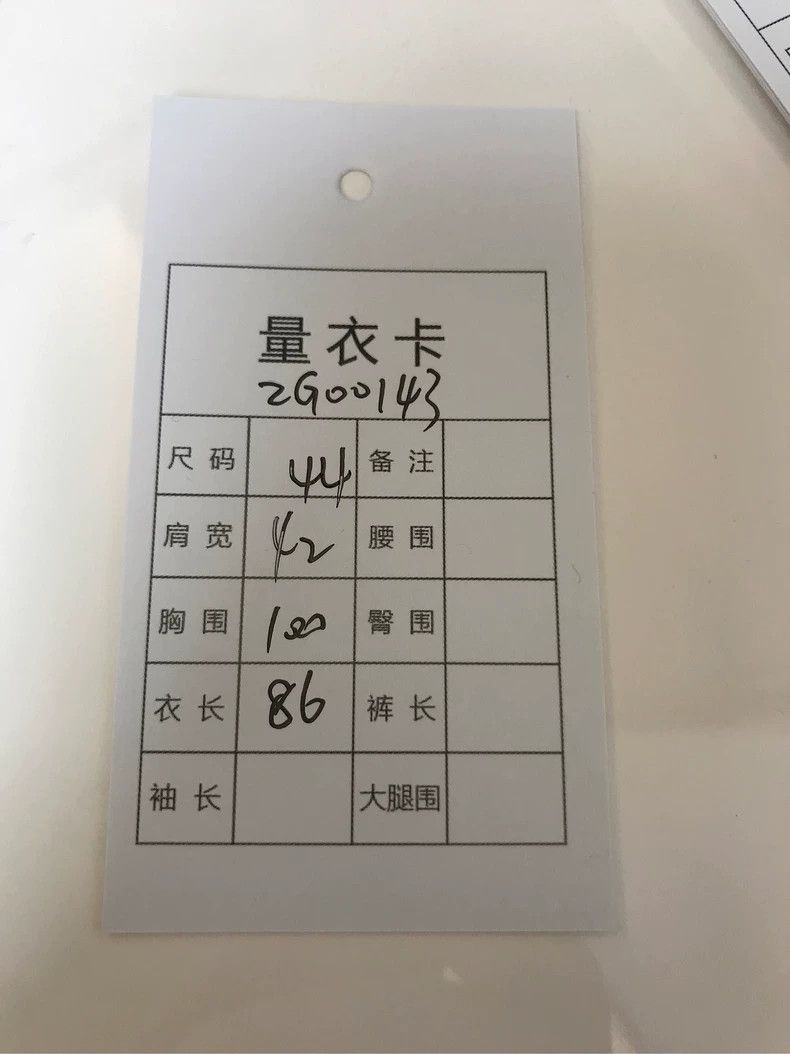 量衣卡
ZG00143
尺码 44 备注
肩宽 42 腰围
胸围 100 臀围
衣长 86 裤长
袖长 大腿围